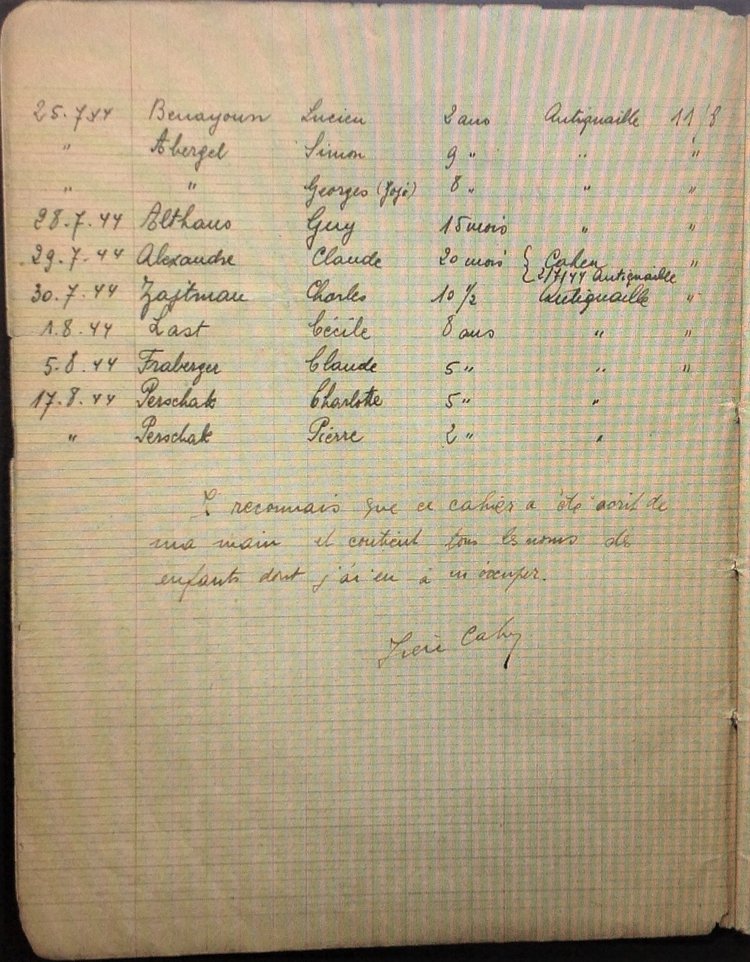 25.7.44 Benayoun Lucien 2 ans Antiquaille 11/8
" Abergel Simon 9 " " "
" " Georges (Jojo) 8 " " "
28.7.44 Althaus Guy 15 mois " "
29.7.44 Alexandre Claude 20 mois { Cahen "
2/7/44 Antiquaille
30.7.44 Zajtman Charles 10 1/2 Antiquaille "
1.8.44 Last Cécile 8 ans " "
5.8.44 Fraberger Claude 5 " " "
17.8.44 Perschak Charlotte 5 " "
" Perschak Pierre 2 " "
reconnais que ce cahier a été écrit de
ma main et contient tous les noms des
enfants dont j'ai eu à m'occuper.